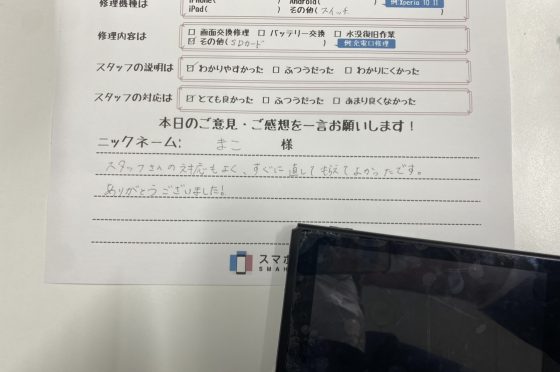 修理機種は iPhone( ) Android( ) 例 Xperia 10 II
iPad( ) その他( スイッチ )
修理内容は □ 画面交換修理 □ バッテリー交換 □ 水没復旧作業
☑ その他( SDカード ) 例 充電口修理
スタッフの説明は ☑ わかりやすかった □ ふつうだった □ わかりにくかった
スタッフの対応は ☑ とても良かった □ ふつうだった □ あまり良くなかった
本日のご意見・ご感想を一言お願いします！
ニックネーム: まこ 様
スタッフさんの対応もよく、すぐに直して もらえてよかったです。
ありがとうございました!
スマホ
SMAH